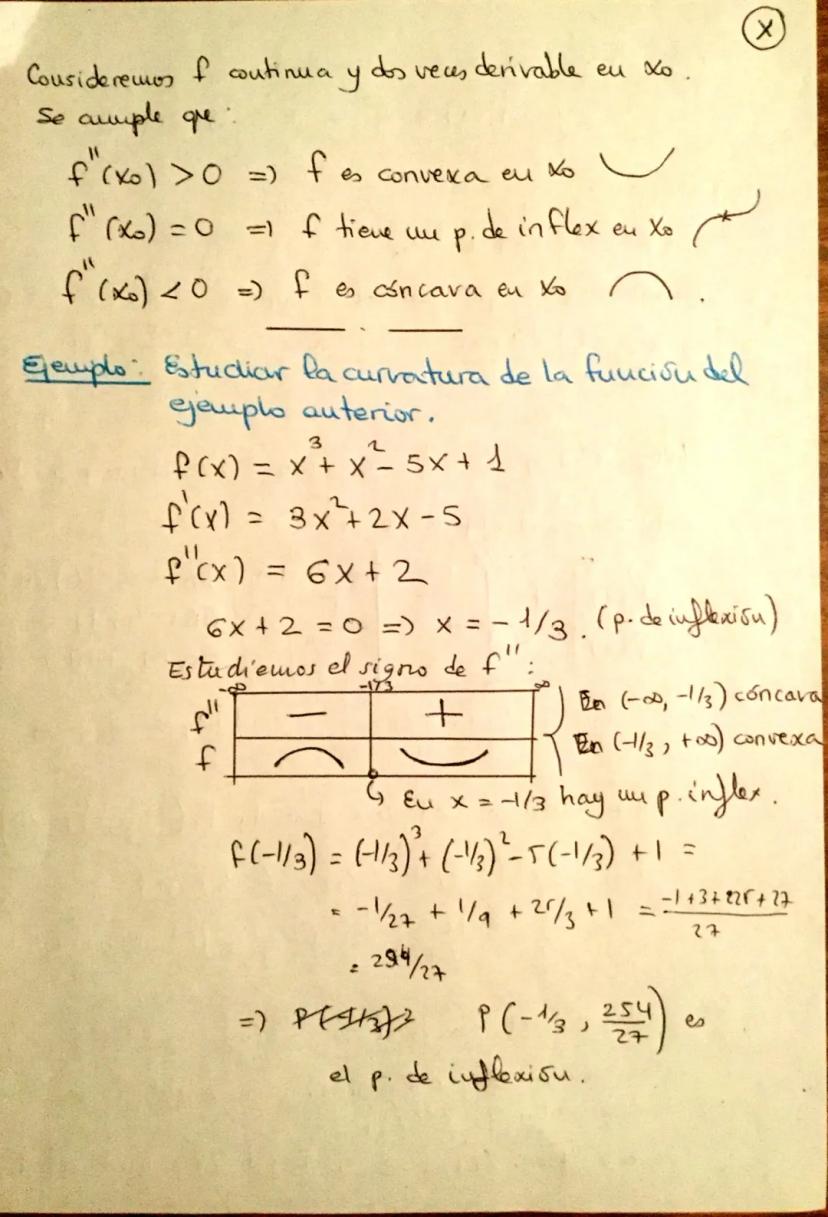 X
Consideremos f continua y dos veces derivable en x₀.
Se cumple que:
f''(x₀) > 0 => f es convexa en x₀
f''(x₀) = 0 => f tiene un p. de inflex en x₀
f''(x₀) < 0 => f es cóncava en x₀ .
Ejemplo: Estudiar la curvatura de la función del
ejemplo anterior.
f(x) = x³ + x² - 5x + 1
f'(x) = 3x² + 2x - 5
f''(x) = 6x + 2
6x + 2 = 0 => x = -1/3. (p. de inflexión)
Estudiemos el signo de f'':
-∞ -1/3 ∞
f'' - +
f
En (-∞, -1/3) cóncava
En (-1/3, +∞) convexa
En x = -1/3 hay un p. inflex.
f(-1/3) = (-1/3)³ + (-1/3)² - 5(-1/3) + 1 =
= -1/27 + 1/9 + 25/3 + 1 = (-1+3+225+27)/27
= 254/27
=> P(-1/3, 254/27) es
el p. de inflexión.